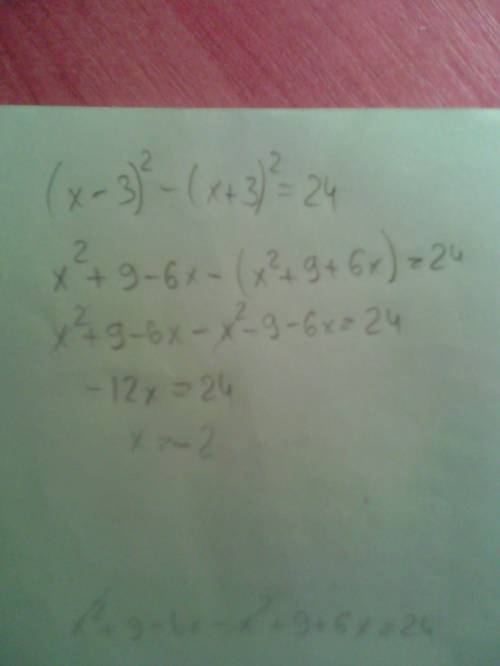 (x-3)² - (x+3)² = 24
x² + 9 - 6x - (x² + 9 + 6x) = 24
x² + 9 - 6x - x² - 9 - 6x = 24
-12x = 24
x = -2
x² + 9 - 6x - x² + 9 + 6x = 24